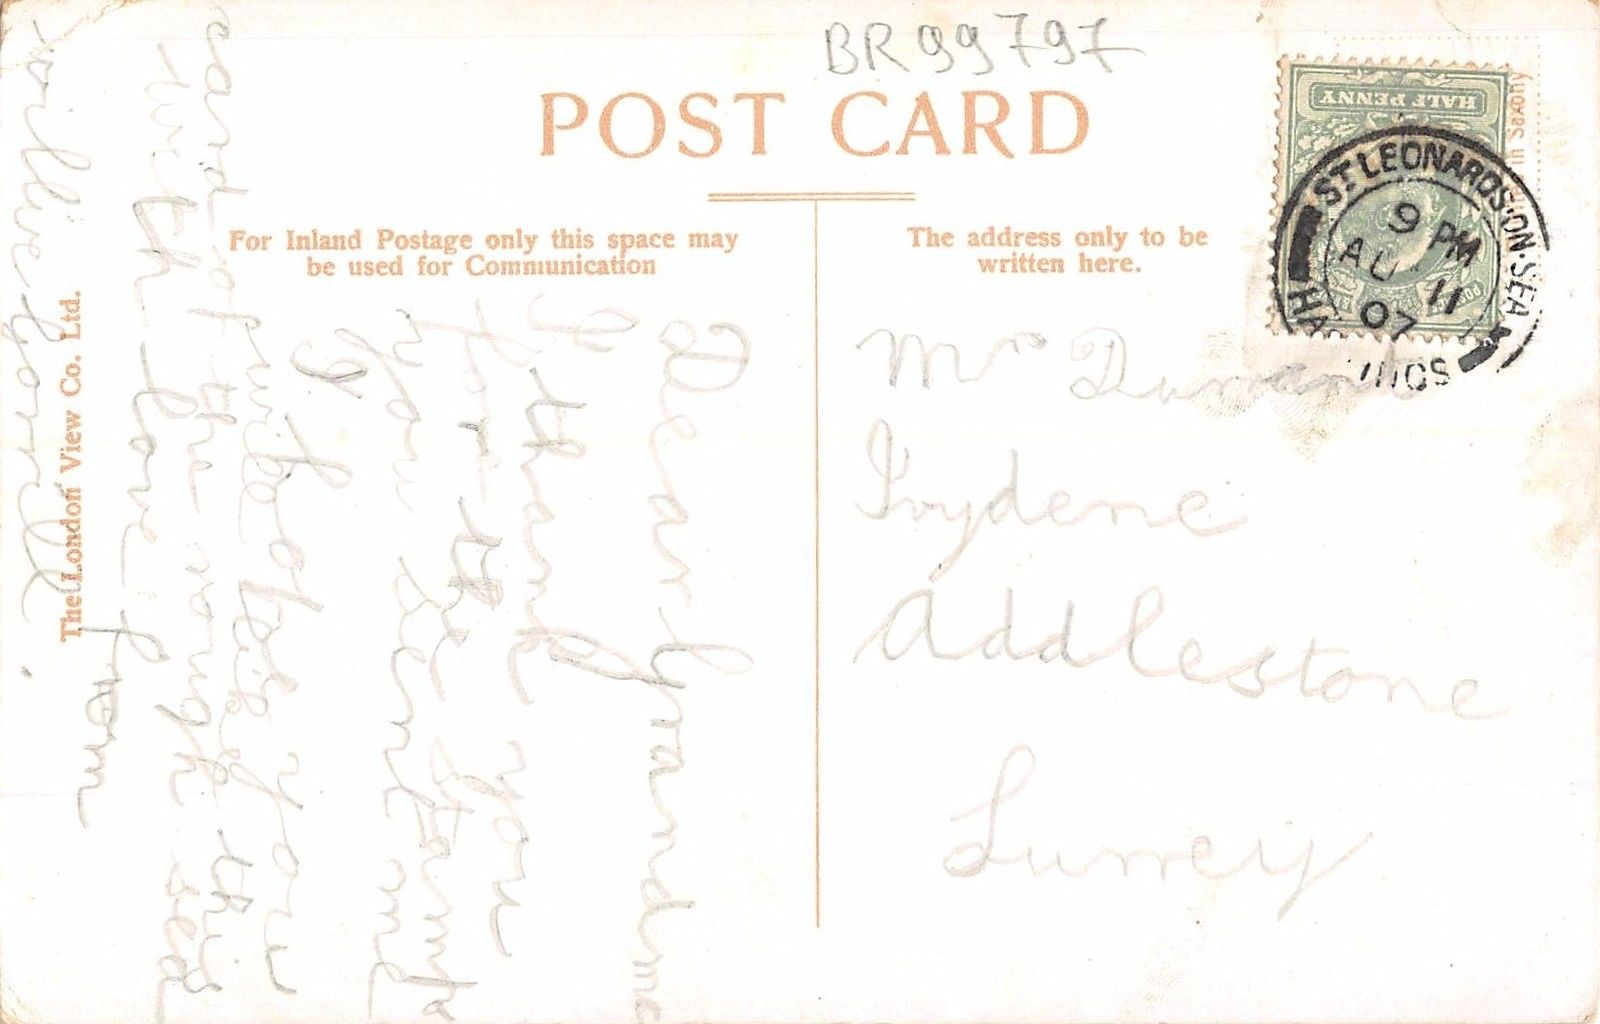 BR 99797
POST CARD
For Inland Postage only this space may
be used for Communication
The address only to be
written here.
The London View Co. Ltd.
in Saxony
HALF PENNY
ST LEONARDS-ON-SEA
9 PM
AU 11
07
HA INGS
Dear Grandma
I thank you
for the stamp
you sent me
I
card of the rough sea
with love from
Mrs
Ivydene
Addlestone
Surrey